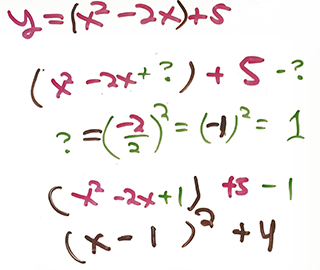 y = (x² - 2x) + 5
(x² - 2x + ?) + 5 - ?
? = (-2/2)² = (-1)² = 1
(x² - 2x + 1) + 5 - 1
(x - 1)² + 4